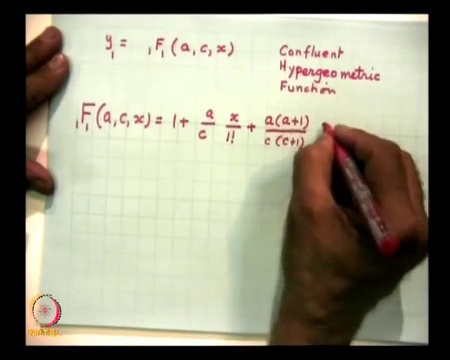 y₁ = ₁F₁ (a, c, x)
Confluent
Hypergeometric
Function
₁F₁ (a, c, x) = 1 + a/c x/1! + a(a+1)/c(c+1)
NPTEL